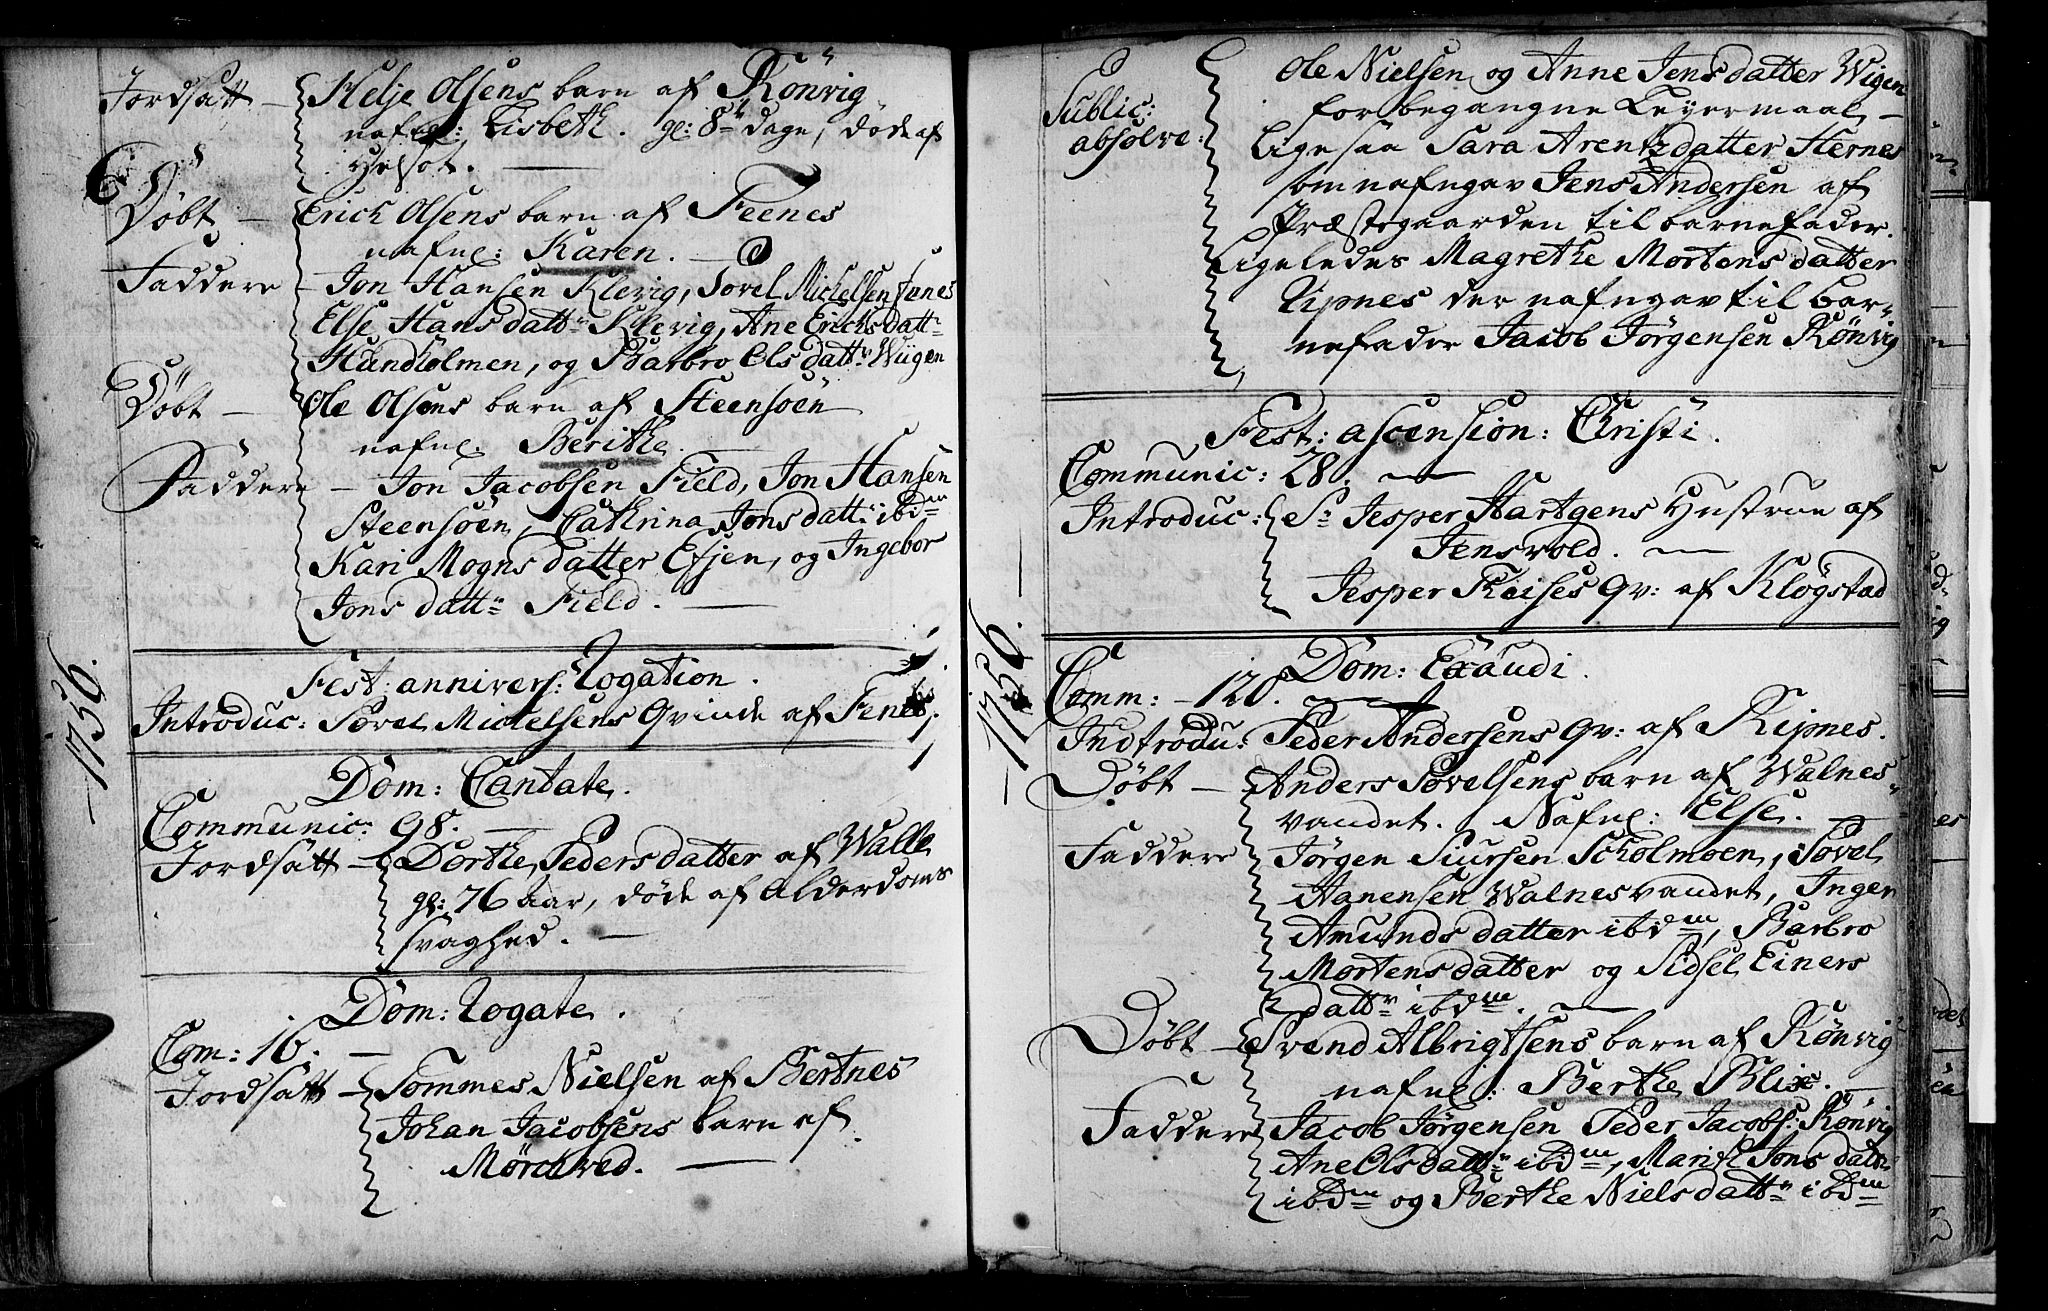 Jordsatt — Helje Olsens barn af Rönvig
nafnl: Lisbeth. gl: 8te dage, döde af
Helsot. —
Döbt — Erich Olsens barn af Feenes
nafnl: Karen. —
Faddere — Jon Hansen Klevig, Sovel Michelsen Fenes
Else Hans dattr Klevig, Ane Erichs datt:
Hundholmen, og Barbro Ols dattr Wiigen
Döbt — Ole Olsens barn af Steensöen
nafnl. Berithe. —
Faddere — Jon Jacobsen Field, Jon Hansen
Steensöen, Cathrina Jons datt: ibdm
Kari Mogns datter Esjen, og Ingebor
Jons datt: Field. —
1756.
Fest: annivers: Rogation.
Introduc: Sovel Mickelsens Qvinde af Fenes.
Dom: Cantate.
Communic: 98. —
Jordsatt — Dorthe Peders datter af Walle
gl: 76 aar, döde af Alderdoms
svaghed. —
Dom: Rogate.
Com: 16. —
Jordsatt — Tommes Nielsen af Bertnes
Johan Jacobsens barn af
Mörchved. —
Public: absolve: Ole Nielsen og Anne Jens datter Wigen
for begangne Leyermaal, —
ligesaa Sara Arentz datter Hernes
som nafngav Jens Andersen af
Præstegaarden til barnefader.
Ligeledes Magrethe Mortens datter
Ripnes der nafngav til bar-
nefader Jacob Jörgensen Rönvig
Fest: ascension: Christi.
Communic: 28. —
Introduc: Sr Jesper Hartgens Hustrue af
Jensvold. —
Jesper Reises Qv: af Klögstad
1756.
Dom: Exaudi.
Comm: — 120.
Indtrodu: Peder Andersens Qv: af Ripnes.
Döbt — Anders Sovelsens barn af Walnes-
vandet. Nafnl: Else. —
Faddere Jörgen Siursen Scholmoen, Sovel
Hanensen Walnesvandet, Inger
Amunds datter ibdm, Barbro
Mortens datter og Sidsel Einers
dattr ibdm. —
Döbt — Svend Albrigtsens barn af Rönvig
nafnl: Berthe Blix. —
Faddere Jacob Jörgensen Peder Jacobs: Rönvig
Ane Ols datt: ibdm, Marist Jons datt:
ibdm og Berthe Niels datt: ibdm